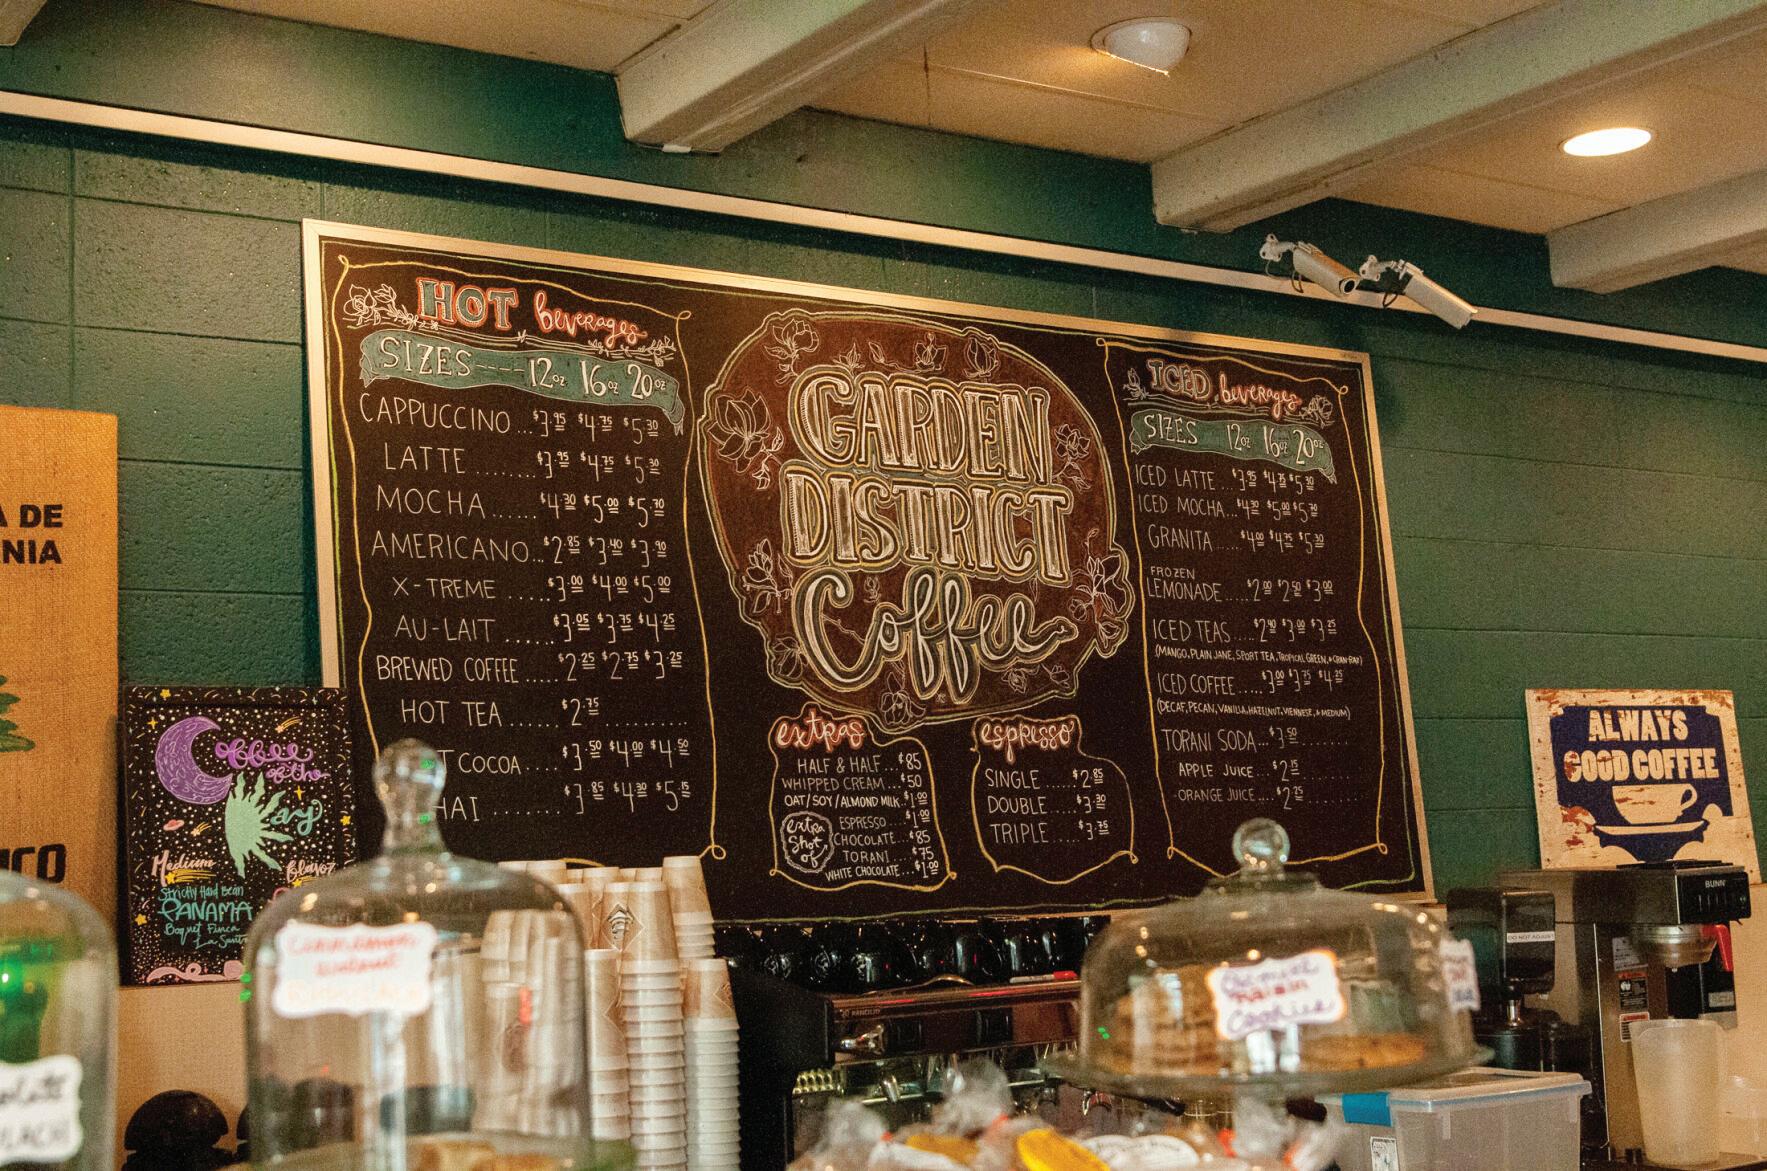 A DE
NIA
ICO
HOT beverages
SIZES----12oz 16oz 20oz
CAPPUCCINO...$3.95 $4.75 $5.30
LATTE.......$3.95 $4.75 $5.30
MOCHA......$4.30 $5.00 $5.70
AMERICANO...$2.85 $3.40 $3.90
X-TREME.....$3.00 $4.00 $5.00
AU-LAIT......$3.05 $3.75 $4.25
BREWED COFFEE.....$2.25 $2.75 $3.25
HOT TEA......$2.75..........
T COCOA....$3.50 $4.00 $4.50
HAI.......$3.85 $4.30 $5.15
GARDEN
DISTRICT
Coffee
extras
HALF & HALF...$85
WHIPPED CREAM...$50
OAT/SOY/ALMOND MILK.$1.00
extra
Shot
of
ESPRESSO....$1.00
CHOCOLATE...$85
TORANI....$75
WHITE CHOCOLATE...$1.00
espresso
SINGLE....$2.85
DOUBLE....$3.30
TRIPLE....$3.75
ICED beverages
SIZES 12oz 16oz 20oz
ICED LATTE...$3.95 $4.75 $5.30
ICED MOCHA...$4.30 $5.00 $5.70
GRANITA....$4.00 $4.75 $5.30
FROZEN
LEMONADE.....$2.00 $2.50 $3.00
ICED TEAS....$2.90 $3.00 $3.25
(MANGO, PLAIN JANE, SPORT TEA, TROPICAL GREEN, & CRAN-RAY)
ICED COFFEE....$3.00 $3.75 $4.25
(DECAF, PECAN, VANILLA, HAZELNUT, VIENNESE, & MEDIUM)
TORANI SODA...$3.50.......
APPLE JUICE...$2.15........
ORANGE JUICE....$2.25.......
Coffee
of the
Day
Medium
flavor
Strictly Hard Bean
PANAMA
Boquet Finca
La Santa
ALWAYS
GOOD COFFEE
BUNN
DO NOT ADJUST
RANCILIO
walnut
Oatmeal
Raisin
Cookies